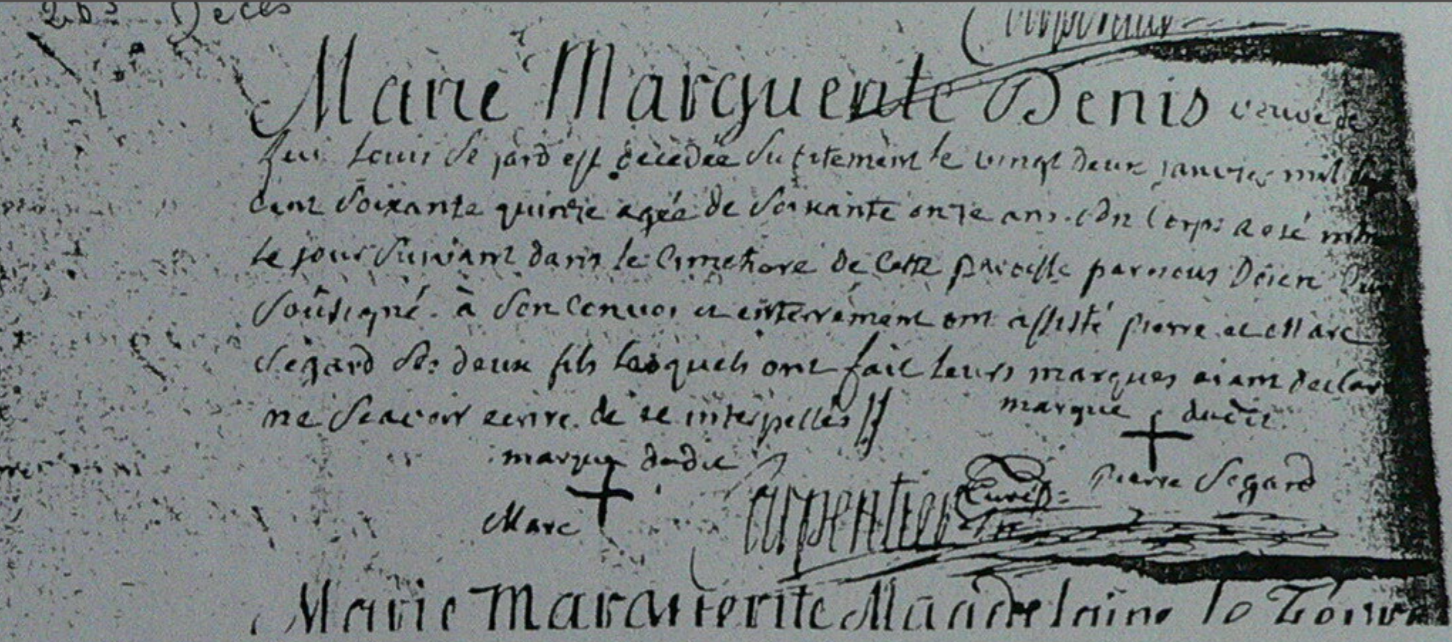 Décès
Carpentier
Marie Marguerite Denis veuve de
feu Louis Segard est decedée subitement le vingt deux janvier mil
cent soixante quinze agée de soixante onze ans. son corps a eté
le jour suivant dans le cimetiere de cette paroisse par nous Doien
soûsigné. à son convoi et enterrement ont assisté pierre et Marc
Segard ses deux fils lesquels ont fait leurs marques aiant declaré
ne scavoir ecrire. de ce interpellés
marque dudit
marque dudit
pierre Segard
Marc
Carpentier Curé
Marie Marguerite Magdelaine